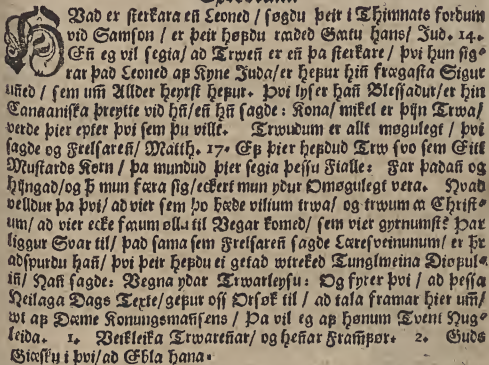 HVad er sterkara en̄ Leoned / søgdu þeir i Thimnats fordum
vid Samson / er þeir høfdu raded Gætu hans / Jud. 14.
En̄ eg vil segia / ad Trwen̄ er en̄ þa sterkare / þvi hun sig-
rar þad Leoned af Kyne Juda / er hefur hin̄ frægasta Sigur
un̄ed / sem um Allder heyrst hefur. Þvi lyser han̄ Blessadur / er hin
Canaaniska þreytte vid hn̄ / en̄ hn̄ sagde: Kona / mikel er þijn Trwa /
verde þier epter þvi sem þu ville. Trwudum er allt møgulegt / þvi
sagde og Frelsaren̄ / Matth. 17. Ef þier hefdud Trw svo sem Eitt
Mustards Korn / þa mundud þier segia þessu Fialle: Far þadan̄ og
hijngad / og þ mun færa sig / eckert mun ydur Omøgulegt vera. Hvad
velldur þa þvi / ad vier sem þo bæde vilium trwa / og trwum a Christ-
um / ad vier ecke faum øllu til Vegar komed / sem vier gyrnumst? Þar
liggur Svar til / þad sama sem Frelsaren̄ sagde Læresveinunum / er þr
adspurdu han̄ / þvi þeir hefdu ei getad wtreked Tunglmeina Diøful-
in̄ / Han̄ sagde: Vegna ydar Trwarleysu: Og fyrer þvi / ad þessa
Heilaga Dags Texte / gefur oss Orsøk til / ad tala framar hier um̄ /
wt af Dæme Konungsman̄sens / Þa vil eg af hønum Tvent Hug-
leida. 1. Veikleika Trwaren̄ar / og hen̄ar Framfør. 2. Guds
Giæsku i þvi / ad Efla hana.